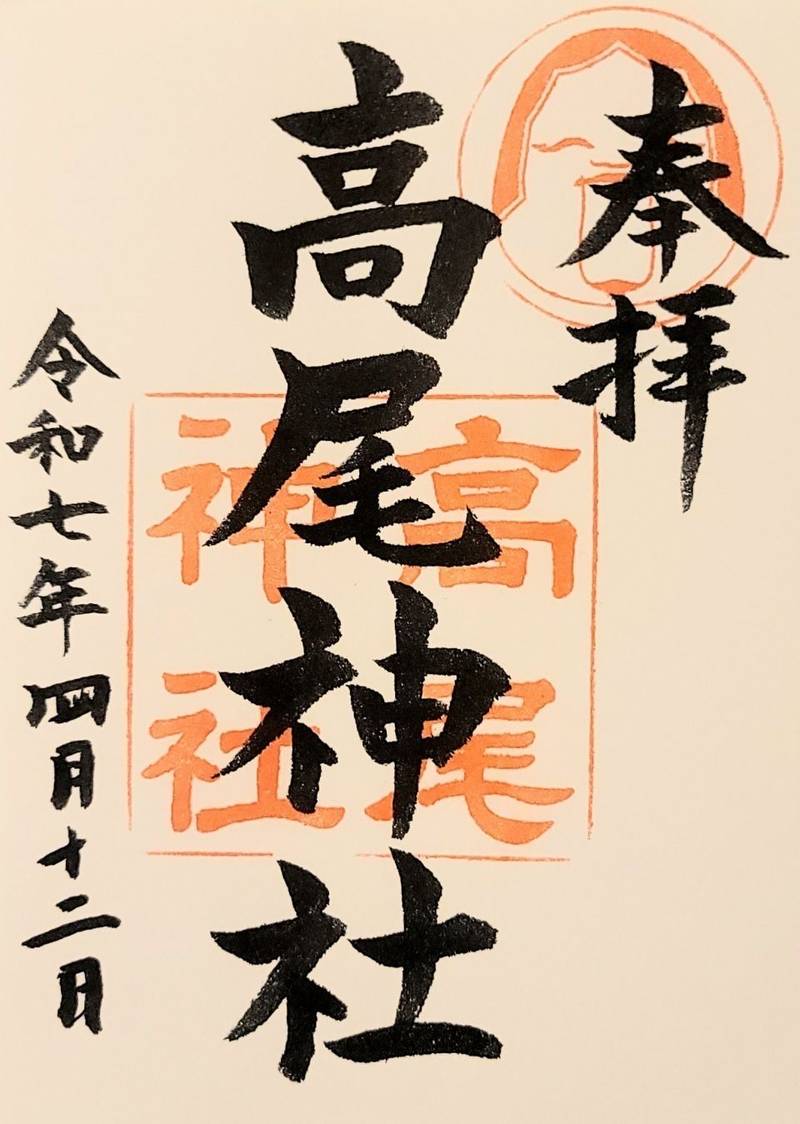 奉拝
高尾神社
高尾
神社
令和七年四月十二日